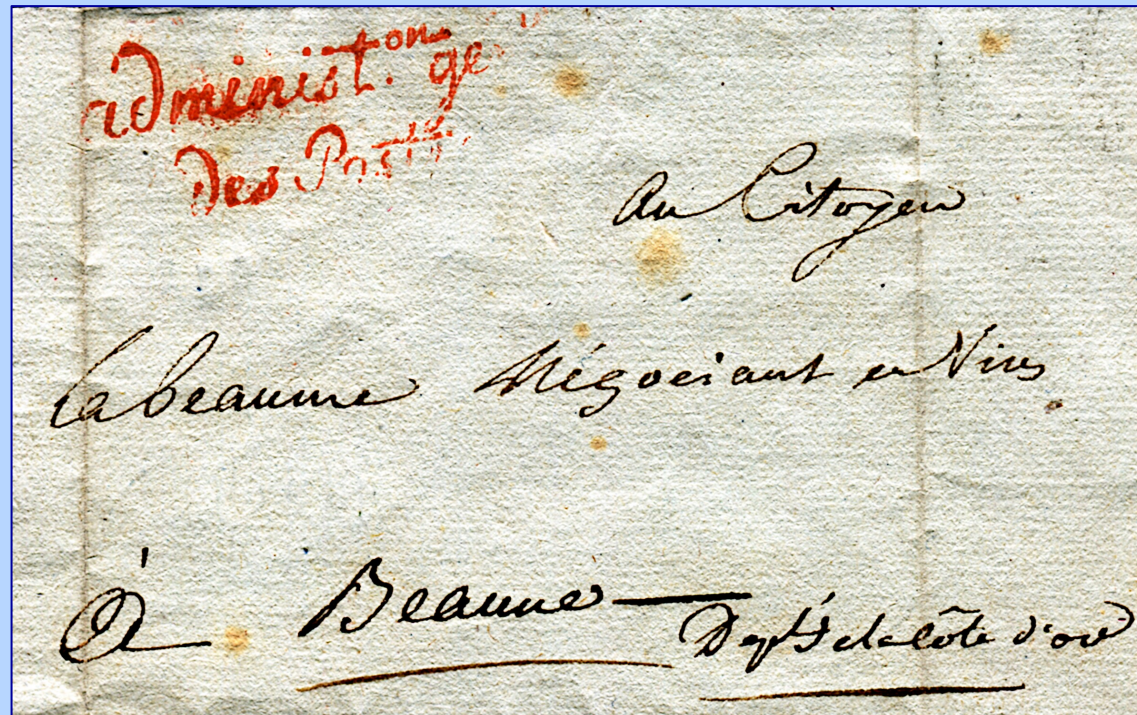 administ.on ge
des Postes
Au Citoyen
labeaume Négociant en Vins
à Beaune
Dept de la côte d'or